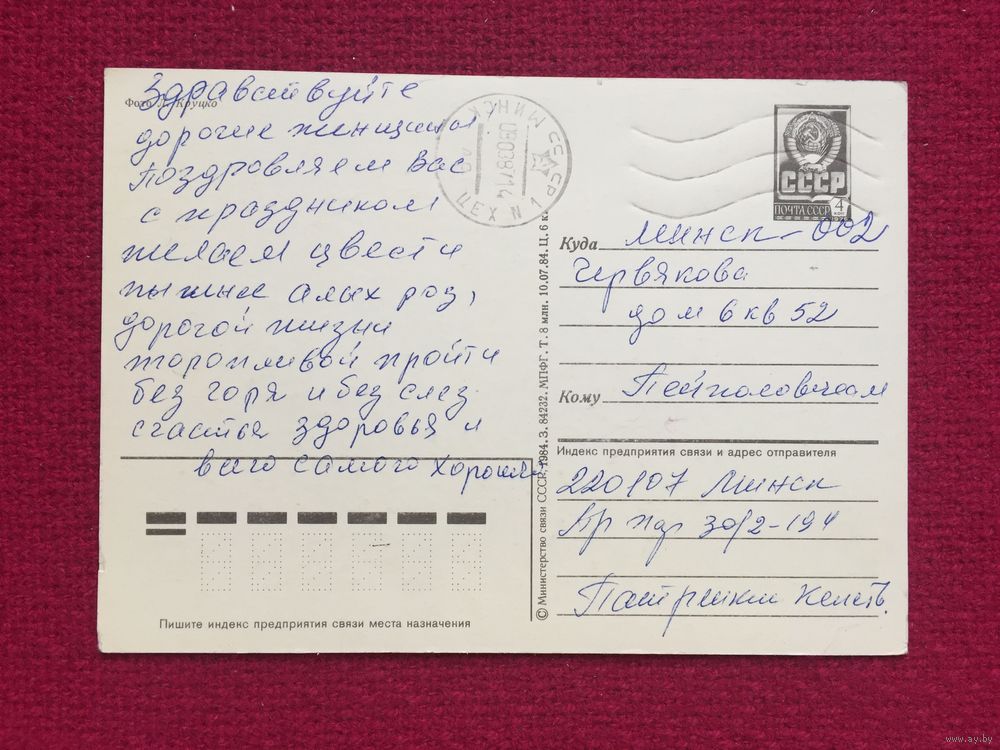 Фото Л. Круцко
Здравствуйте
дорогие женщины!
Поздравляем Вас
с праздником
желаем цвести
пышнее алых роз,
дорогой жизни
торопливой пройти
без горя и без слез.
счастья здоровья и
всего самого хорошего
СССР МИНСК
ЦЕХ N 1
СССР
ПОЧТА СССР 4 коп
Куда Минск-002
Червякова
дом 6 кв 52
Кому
Индекс предприятия связи и адрес отправителя
220107 Минск
30/2-194
© Министерство связи СССР, 1984. З. 84232. МПФГ. Т. 8 млн. 10.07.84. Ц. 6 к.
Пишите индекс предприятия связи места назначения
www.ay.by